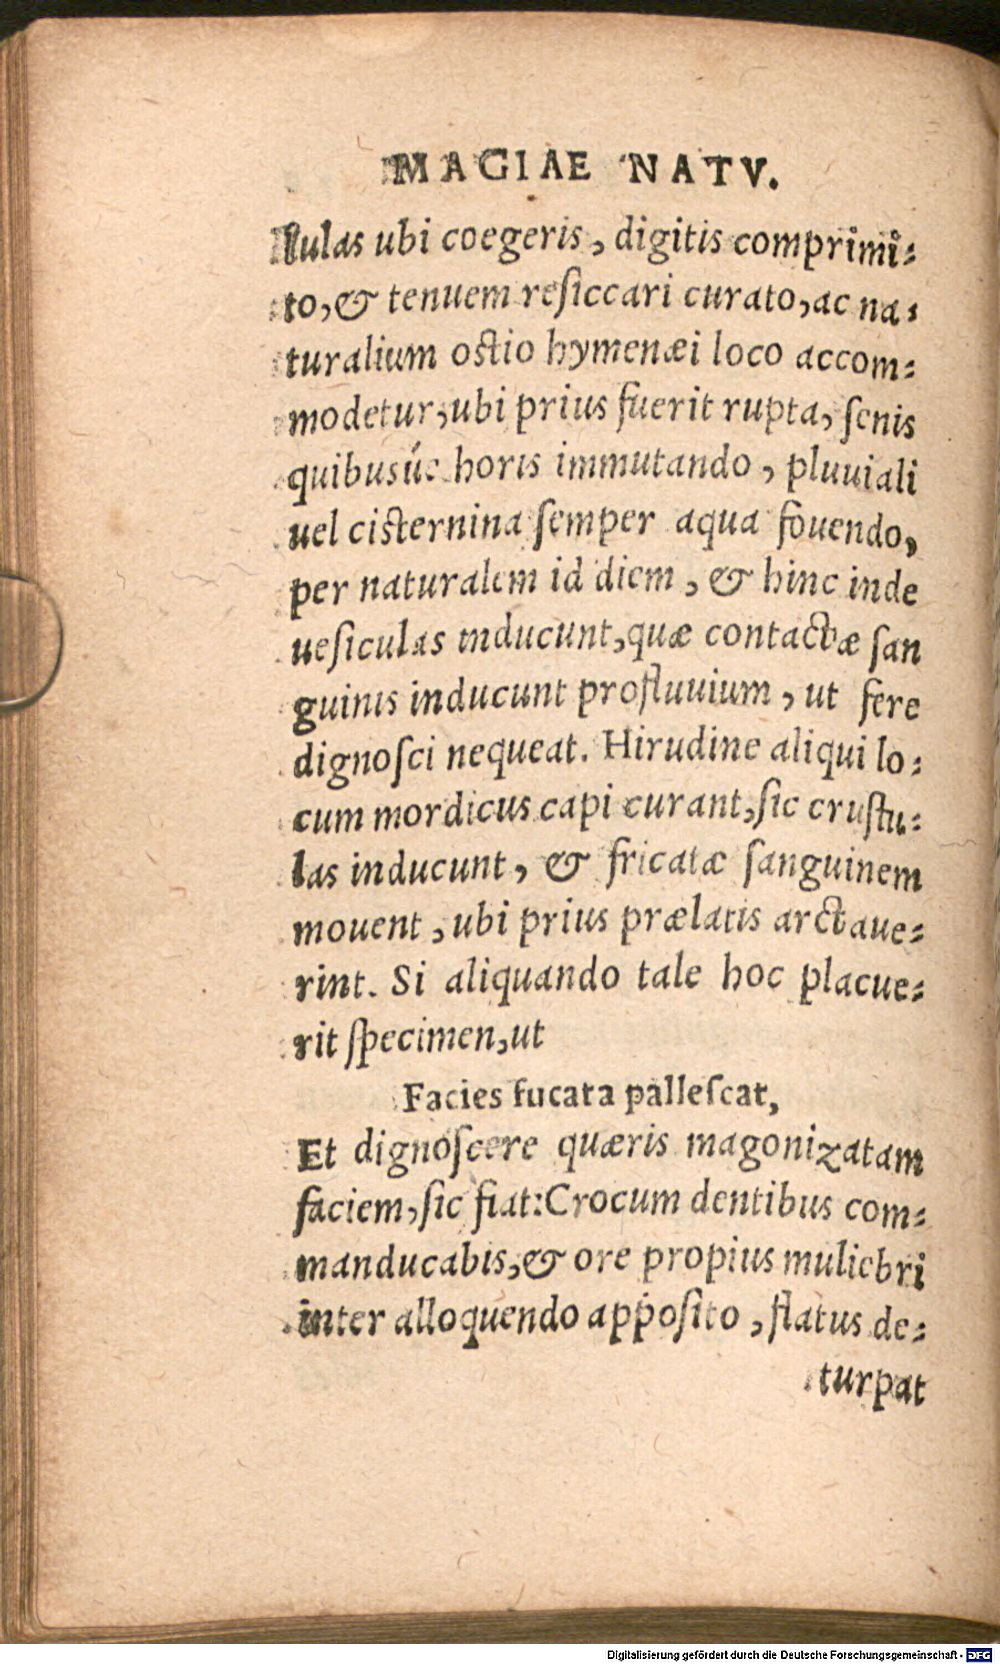 MAGIAE NATV.
stulas ubi coegeris, digitis comprimi-
to, & tenuem resiccari curato, ac na-
turalium ostio hymenæi loco accom-
modetur, ubi prius fuerit rupta, senis
quibusúe horis immutando, pluuiali
uel cisternina semper aqua fouendo,
per naturalem id diem, & hinc inde
uesiculas inducunt, quæ contactæ san
guinis inducunt profluuium, ut fere
dignosci nequeat. Hirudine aliqui lo-
cum mordicus capi curant, sic crustu-
las inducunt, & fricatæ sanguinem
mouent, ubi prius prælatis arctaue-
rint. Si aliquando tale hoc placue-
rit specimen, ut
Facies fucata pallescat,
Et dignoscere quæris magonizatam
faciem, sic fiat: Crocum dentibus com-
manducabis, & ore propius muliebri
inter alloquendo apposito, flatus de-
turpat
Digitalisierung gefördert durch die Deutsche Forschungsgemeinschaft - DFG